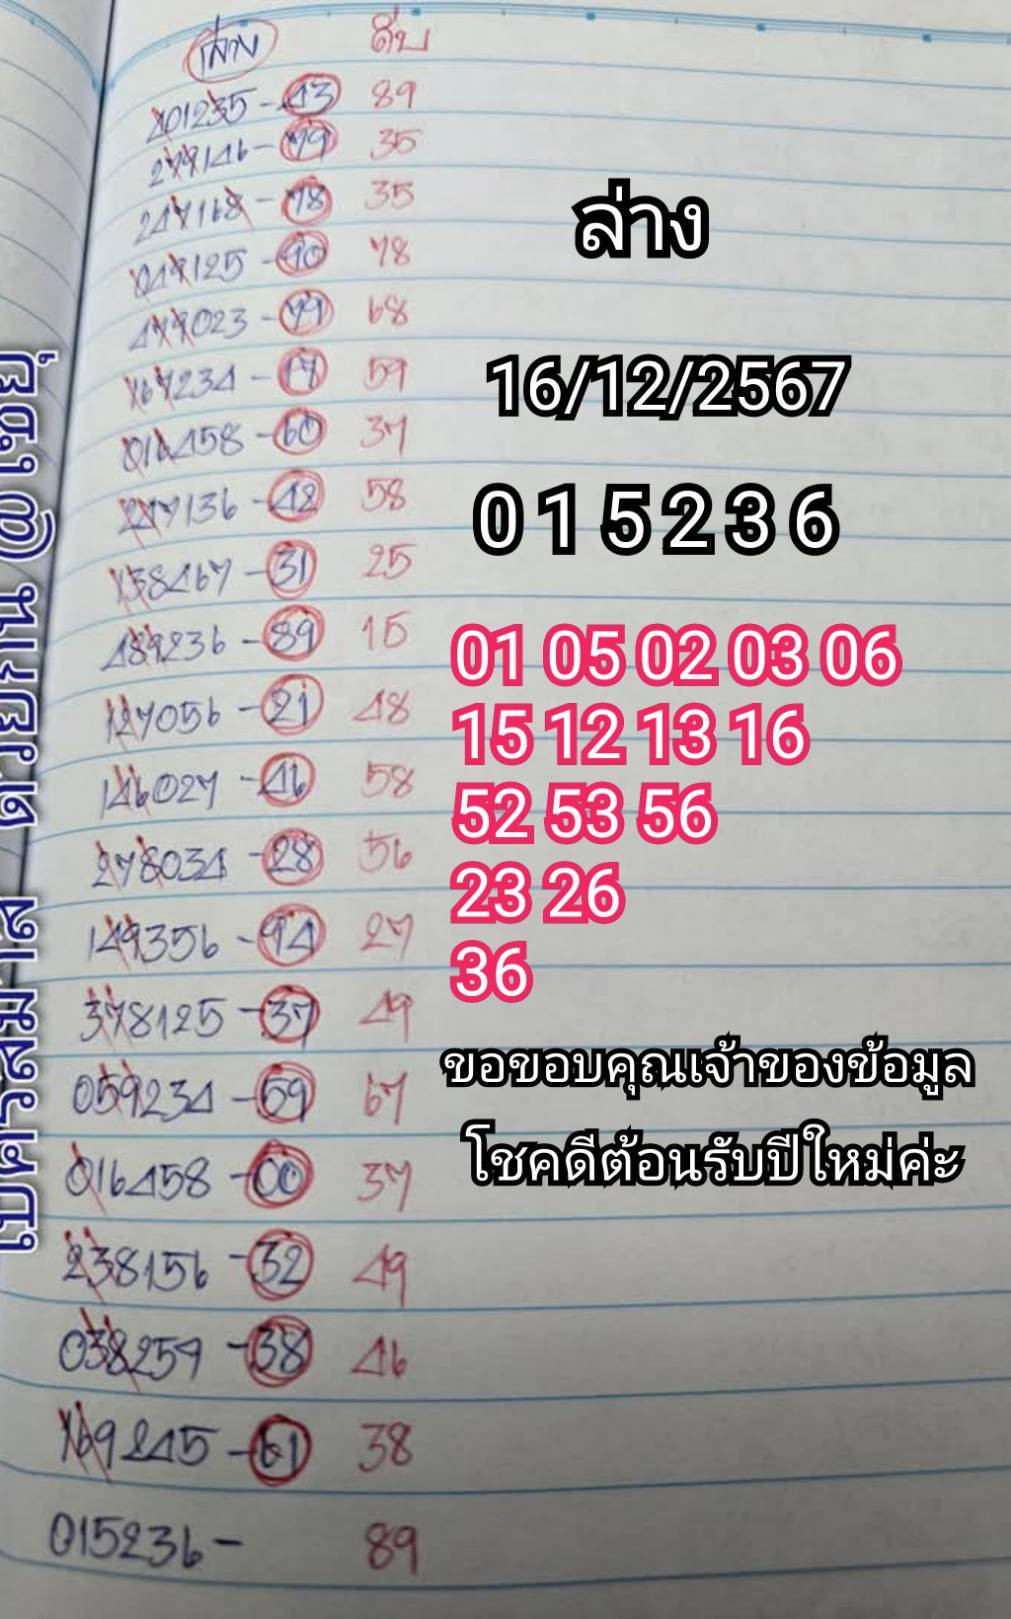 ล่าง ดับ
401235-43 89
279146-79 35
247168-78 35
049125-90 78
479023-79 68
167234-17 59
016458-60 37
247136-42 58
138467-31 25
489236-89 15
127056-21 48
146027-46 58
278034-28 56
149356-94 27
378125-37 49
059234-59 67
016458-00 37
238156-32 49
038259-38 46
169245-61 38
015236- 89
ล่าง
16/12/2567
0 1 5 2 3 6
01 05 02 03 06
15 12 13 16
52 53 56
23 26
36
ขอขอบคุณเจ้าของข้อมูล
โชคดีต้อนรับปีใหม่ค่ะ